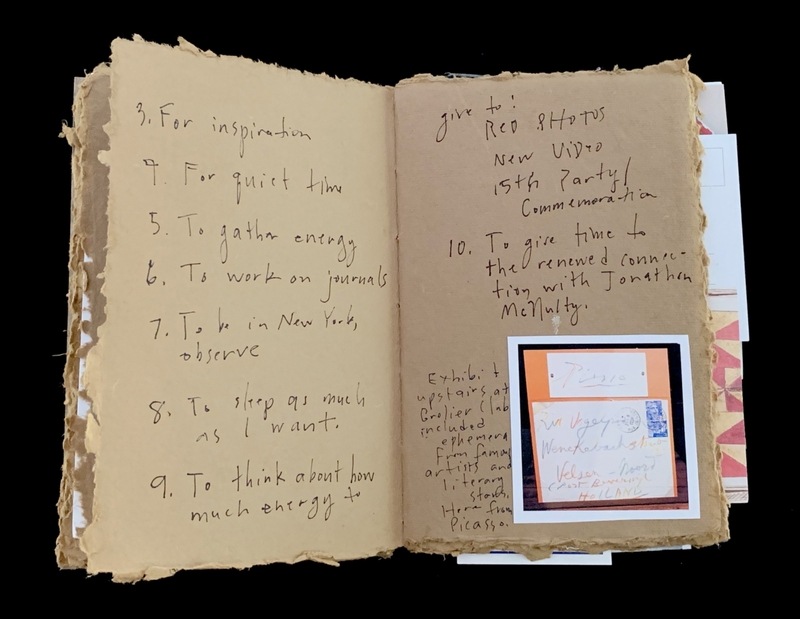 3. For inspiration
4. For quiet time
5. To gather energy
6. To work on journals
7. To be in New York,
observe
8. To sleep as much
as I want.
9. To think about how
much energy to
give to:
RED PHOTOS
New Video
15th Party/
Commemoration
10. To give time to
the renewed connec-
tion with Jonathan
McNulty.
Exhibit
upstairs at
Grolier Club
included
ephemera
from famous
artists and
literary
stars.
Here from
Picasso.
Picasso
Velsen-Noord
HOLLAND